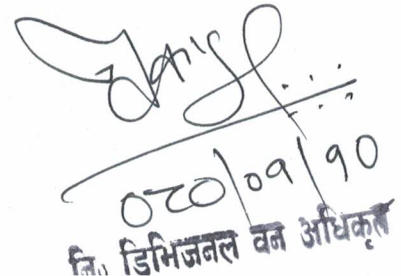 ०८०/०९/१०
नि. डिभिजनल वन अधिकृत